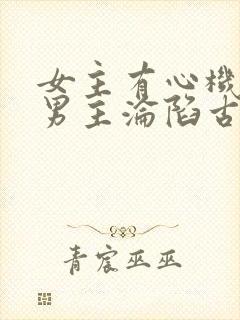 女主有心机
男主沦陷古
青宸巫巫